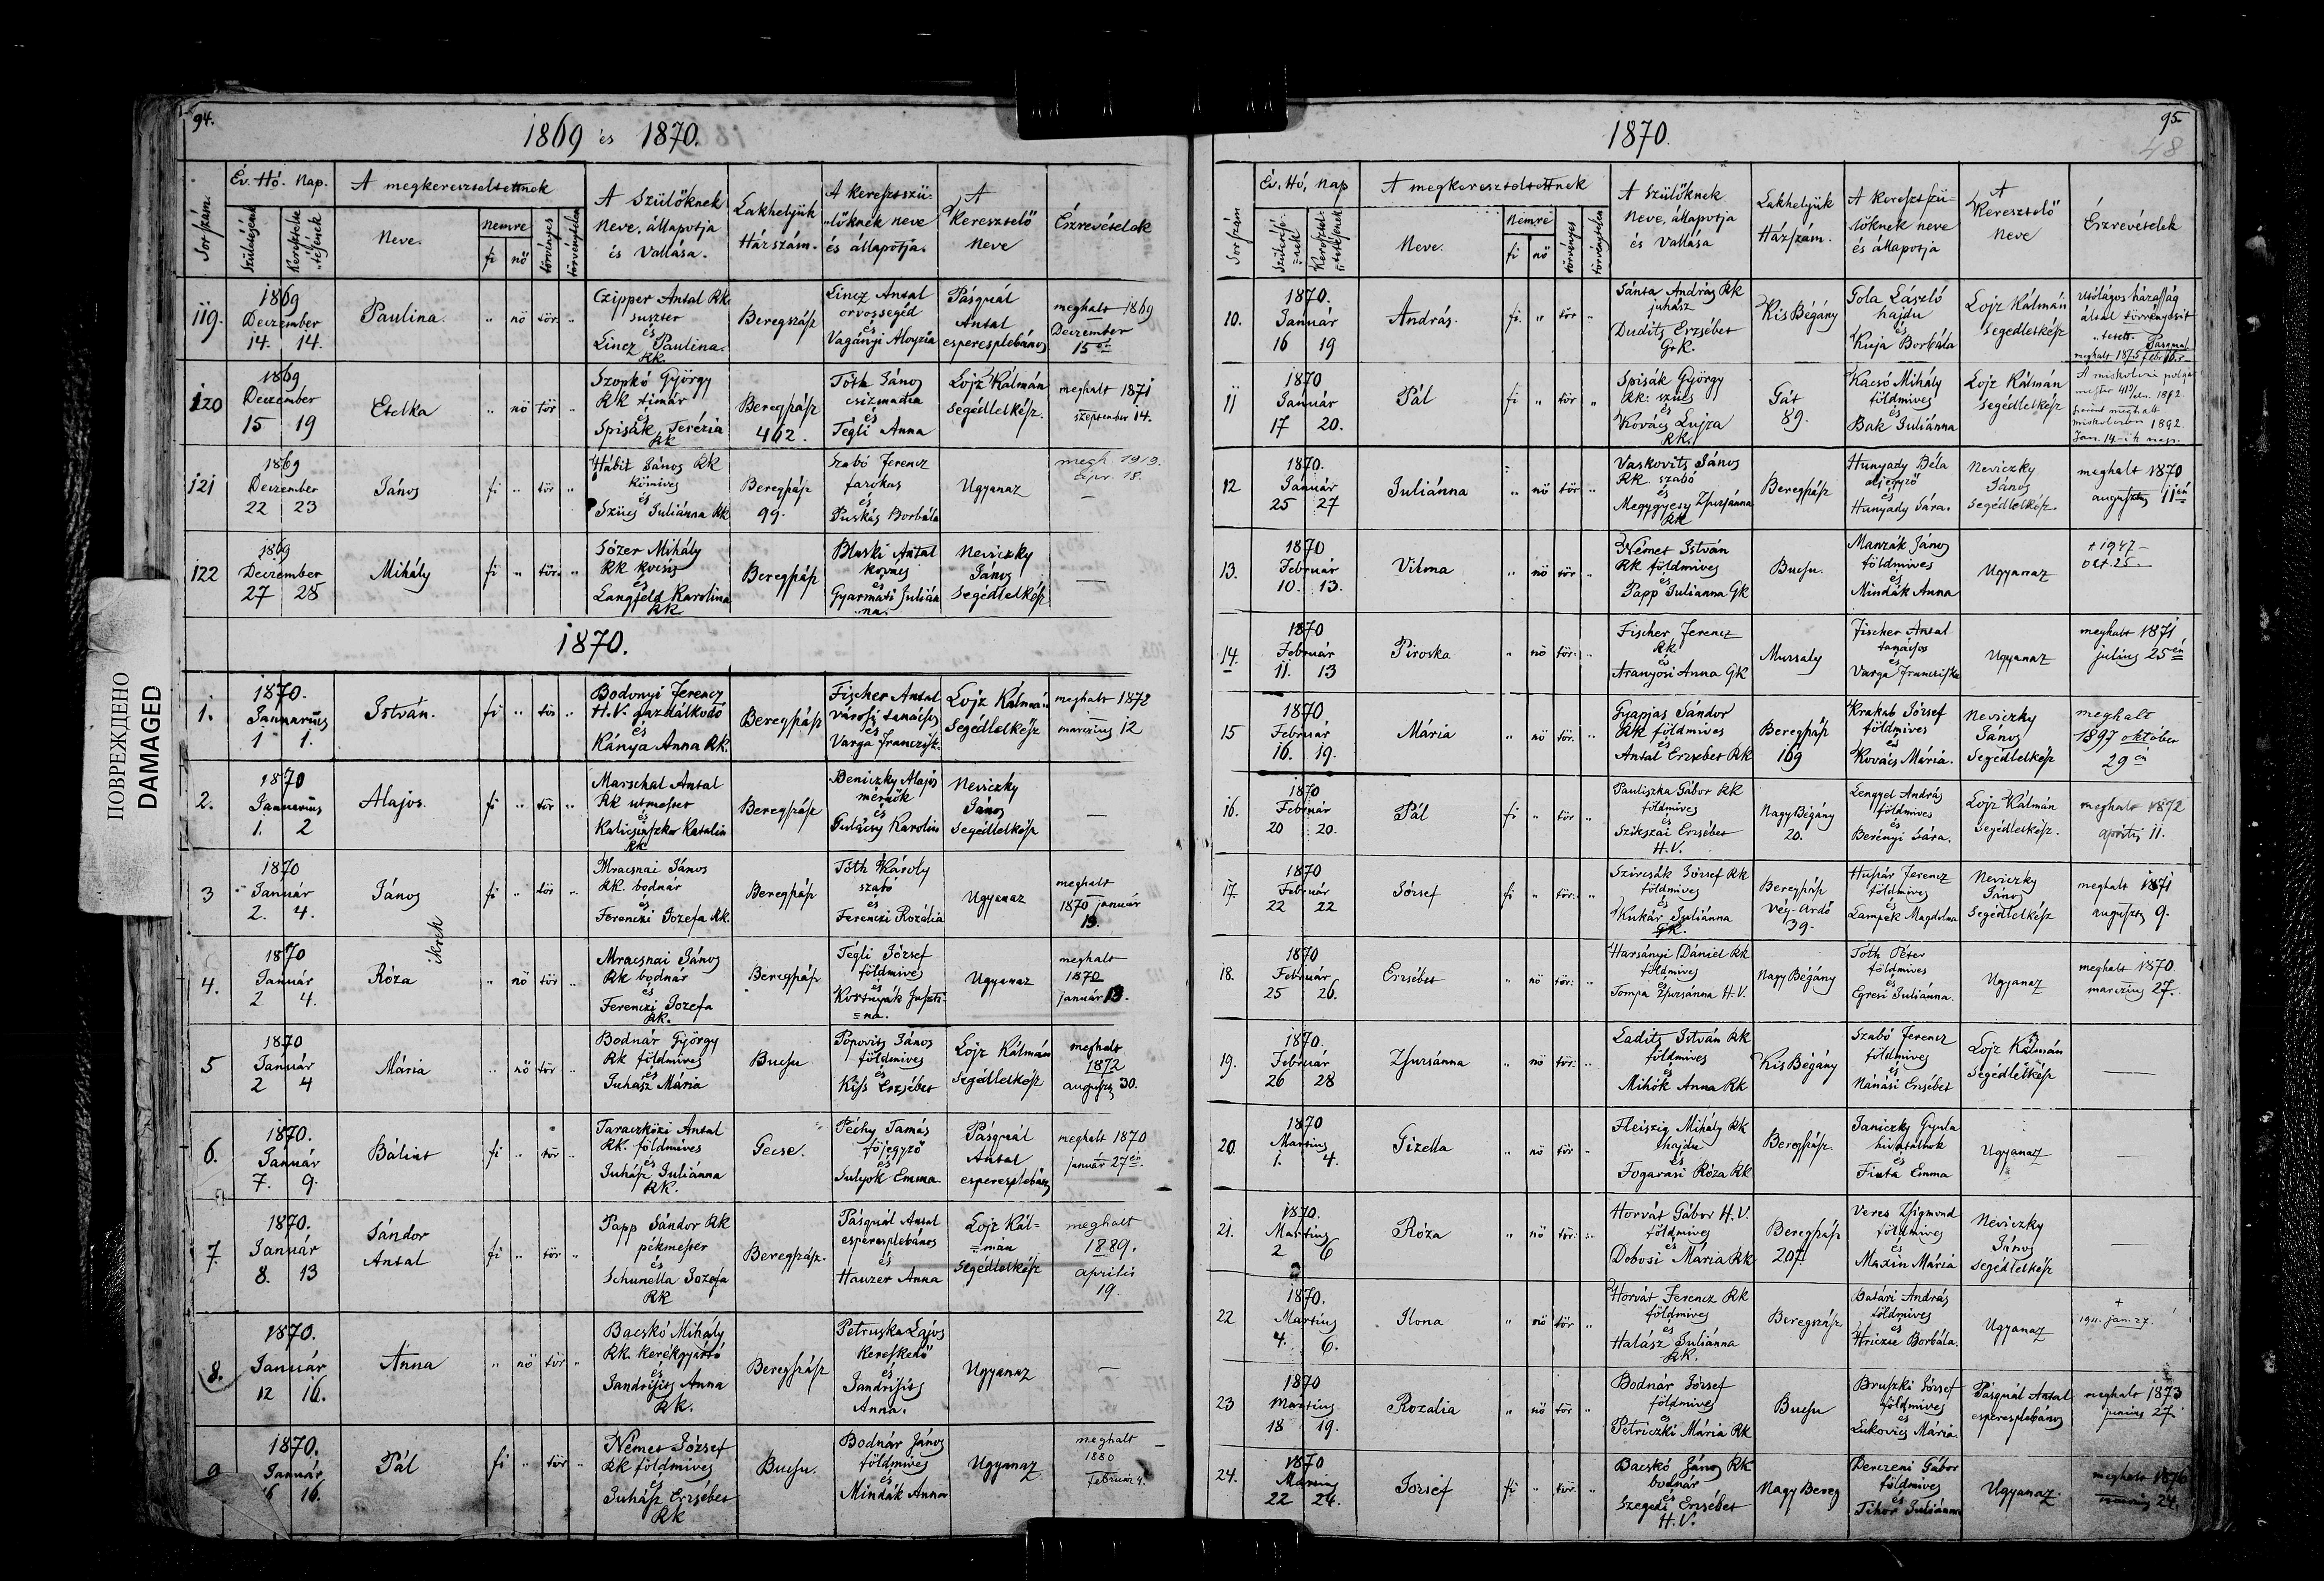 94.
1869 és 1870.
Sor szám.
Év. Hó. Nap.
Születésének
Keresztelte-
tésének
A megkereszteltettnek
Neve.
Nemre
fi nö
törvényes
törvénytelen
A Szülőknek
Neve, állapotja
és Vallása.
Lakhelyük
Házszám.
A keresztszü-
lőknek neve
és állapotja.
A
Keresztelő
neve
Észrevételek
119.
1869
Deczember
14. 14.
Paulina.
" nö tör. "
Czipper Antal RK.
suszter
és
Lincz Paulina.
RK.
Beregszász
Lincz Antal
orvossegéd
és
Vagányi Aloyzia
Pásguál
Antal
esperesplebános
meghalt 1869
Deczember
15 én
120
1869
Deczember
15 19
Etelka
" nö tör "
Szopkó György
RK timár
és
Spisák Terézia
RK
Beregszász
462.
Tóth János
csizmadia
és
Tegli Anna
Lojz Kálmán
Segédlelkész.
meghalt 1871
szeptember 14.
121
1869
Deczember
22 23
János
fi " tör "
Hábit János RK
kőmives
és
Szücs Juliánna RK
Beregszász
99.
Szabó Ferencz
farokas
és
Puskás Borbála
Ugyanaz
megh. 1919.
ápr. 18.
—
122
1869
Deczember
27 28
Mihály
fi " tör. "
Józer Mihály
RK kocsis
és
Langfeld Karolina
RK
Beregszász
Bluski Antal
kovács
és
Gyarmati Julián
na.
Neviczky
János
Segédlelkész
—
1870.
1.
1870.
Januarius
1 1.
István.
fi " tör "
Bodonyi Ferencz
H.V. gazdálkodó
és
Kánya Anna RK.
Beregszász
Fischer Antal
városi tanácsos
és
Varga Francziska
Lojz Kálmán
Segédlelkész
meghalt 1872
marczius 12
2.
1870
Januarius
1. 2
Alajos.
fi " tör "
Marschal Antal
RK utmester
és
Katalin
RK
Beregszász
Beniczky Alajos
mérnök
és
Gulácsy Karolin
Neviczky
János
Segédlelkész
—
3
1870
Január
2. 4.
János
ikrek
fi " tör "
Mracsnai János
RK. bodnár
és
Ferenczi Jozefa RK.
Beregszász
Tóth Károly
szabó
és
Ferenczi Rozália
Ugyanaz
meghalt
1870 január
19.
4.
1870
Január
2 4.
Róza
" nö tör "
Mracsnai János
RK bodnár
és
Ferenczi Jozefa
RK.
Beregszász
Tegli József
földmives
és
Ugyanaz
meghalt
1870
január 13.
5
1870
Január
2 4
Mária
" nö tör "
Bodnár György
RK földmives
és
Juhász Mária
Bucsu
Popovits János
földmives
és
Kiss Erzsébet
Lojz Kálmán
Segédlelkész
meghalt
1872
augusz 30.
6.
1870.
Január
7. 9.
Bálint
fi " tör "
Taraczközi Antal
RK. földmives
és
Juhász Juliánna
RK.
Gecse.
Péchy Tamás
főjegyző
és
Sulyok Emma.
Pásguál
Antal
esperesplebános
meghalt 1870
január 27én.
7.
1870.
Január
8. 13
Sándor
Antal
fi " tör "
Papp Sándor RK
pékmester
és
Schunella Jozefa
RK
Beregszász.
Pásguál Antal
esperesplebános
és
Hauzer Anna
Lojz Kál-
mán
Segédlelkész
meghalt
1889.
április
19.
8.
1870.
Január
12 16.
Anna
" nö tör "
Bacskó Mihály
RK. kerékgyártó
és
Jandrisits Anna
RK.
Beregszász
Petruska Lajos
Kereskedő
és
Jandrisits
Anna.
Ugyanaz
—
9
1870.
Január
16.
Pál
fi " tör "
Német József
RK földmives
és
Juhász Erzsébet
RK
Bucsu.
Bodnár János
földmives
és
Mindák Anna
Ugyanaz
meghalt
1880
Február 4.
95.
48
1870.
Sor szám
Év, Hó, Nap
Születésé-
nek
Keresztel-
tetésének
A megkereszteltettnek
Neve.
Nemre
fi nö
törvényes
törvénytelen
A Szülőknek
Neve, állapotja
és Vallása
Lakhelyük
Házszám.
A keresztszü-
lőknek neve
és állapotja
A
Keresztelő
neve
Észrevételek
10.
1870.
Január
16 19
András.
fi. " tör "
Sánta András RK
juhász
Dudits Erzsébet
GrK.
Kis Bégány
Tola László
hajdu
és
Kuja Borbála
Lojz Kálmán
Segédlelkész
Utólagos házasság
által törvényesit
tetett. Pásguál
meghalt 1875 Febr 16.
11
1870
Január
17 20.
Pál
fi " tör "
Spisák György
RK. szücs
és
Kovács Lujza
RK.
Gát
89.
Kacsó Mihály
földmives
és
Bak Juliánna
Lojz Kálmán
Segédlelkész
A miskolczi polgár
mester 1892.
szerint meghalt
Miskolczon 1892.
Jan. 14.-ik napj.
12
1870.
Január
25 27
Juliánna
" nö tör "
Vaskovits János
RK. szabó
és
Megygyesy Zsuzsanna
RK
Beregszász
Hunyady Béla
aljegyző
és
Hunyady Sára.
Neviczky
János
Segédlelkész.
meghalt 1870
augusztus 11én
13.
1870
Február
10. 13.
Vilma
" nö tör "
Német István
RK földmives
és
Papp Julianna GK
Bucsu.
Manzák János
földmives
és
Mindák Anna
Ugyanaz
+ 1947 –
okt. 25. –
14.
1870
Február
11. 13
Piroska
" nö tör. "
Fischer Ferencz
RK
és
Aranyosi Anna GK
Muzsaly
Fischer Antal
tanácsos
és
Varga Francziska
Ugyanaz
meghalt 1871
julius 25én
15
1870
Február
16. 19.
Mária
" nö tör. "
Gyapjas Sándor
RK földmives
és
Antal Erzsébet RK
Beregszász
169
Krakab József
földmives
és
Kovács Mária.
Neviczky
János
Segédlelkész
meghalt
1897 október
29én
16.
1870
Február
20 20.
Pál
fi " tör "
Pauliszka Gábor RK
földmives
és
Szikszai Erzsébet
H.V.
Nagy Bégány
20.
Lengyel András
földmives
és
Berényi Sára.
Lojz Kálmán
Segédlelkész.
meghalt 1872
április 11.
17.
1870
Február
22 22
József
fi " tör. "
Szircsák József RK
földmives
és
Kukár Juliánna
GK.
Beregszász
Vég-Ardó
39.
Huszár Ferencz
földmives
és
Lampek Magdolna
Neviczky
János
Segédlelkész
meghalt 1871
augusztus 9.
18.
1870
Február
25 26.
Erzsébet
" nö tör. "
Harsányi Dániel RK
földmives
és
Tompa Zsuzsánna H.V.
Nagy Bégány
Tóth Péter
földmives
és
Egresi Juliánna.
Ugyanaz
meghalt 1870.
marczius 27.
19.
1870.
Február
26 28
Zsuzsánna
" nö tör. "
Ladits István RK
földmives
és
Mihók Anna RK
Kis Bégány
Szabó Ferencz
földmives
és
Nánási Erzsébet
Lojz Kálmán
Segédlelkész
—
20.
1870
Martius
1. 4.
Gizella
" nö tör "
Fleiszig Mihály RK
hajdu
és
Fogarasi Róza RK
Beregszász.
Janiczky Gyula
hivatalnok
és
Finta Emma
Ugyanaz
—
21.
1870.
Martius
2 6
Róza
" nö tör. "
Horvát Gábor H.V.
földmives
és
Dobosi Mária RK
Beregszász
207.
Veres Zsigmond
földmives
és
Maxin Mária
Neviczky
János
Segédlelkész
—
22
1870.
Martius
4. 6.
Ilona
" nö tör "
Horvát Ferencz RK
földmives
és
Halász Juliánna
RK.
Beregszász
Batári András
földmives
és
Hriczu Borbála.
Ugyanaz
+
1911. jan. 27.
23
1870
Martius
18 19.
Rozalia
" nö tör "
Bodnár József
földmives
és
Petriczki Mária RK
Bucsu
Bruszki József
földmives
és
Lukovics Mária.
Pásguál Antal
esperesplebános
meghalt 1873
junius 27.
24.
1870
Martius
22 24.
Jozsef
fi " tör. "
Bacskó János RK
bodnár
és
Szegedi Erzsébet
H.V.
Nagy Bereg
Derczeni Gábor
földmives
és
Tihor Juliánna
Ugyanaz
meghalt 1876
24.
ПОВРЕЖДЕНО
DAMAGED